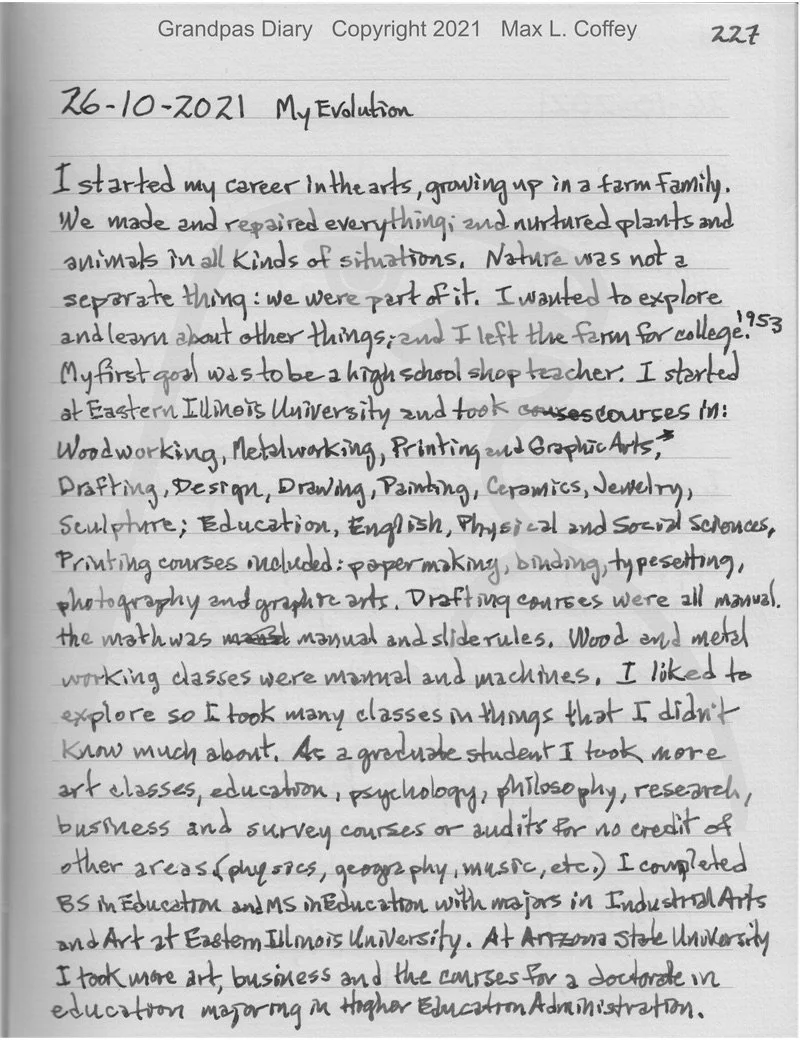 Grandpas Diary Copyright 2021 Max L. Coffey
227
26-10-2021 My Evolution
I started my career in the arts, growing up in a farm family.
We made and repaired everything; and nurtured plants and
animals in all kinds of situations. Nature was not a
separate thing: we were part of it. I wanted to explore
and learn about other things; and I left the farm for college. 1953
My first goal was to be a high school shop teacher. I started
at Eastern Illinois University and took couses courses in:
Woodworking, Metalworking, Printing and Graphic Arts,*
Drafting, Design, Drawing, Painting, Ceramics, Jewelry,
Sculpture; Education, English, Physical and Social Sciences,
Printing courses included: papermaking, binding, typesetting,
photography and graphic arts. Drafting courses were all manual.
the math was manual and sliderules. Wood and metal
working classes were manual and machines. I liked to
explore so I took many classes in things that I didn't
know much about. As a graduate student I took more
art classes, education, psychology, philosophy, research,
business and survey courses or audits for no credit of
other areas (physics, geography, music, etc.) I completed
BS in Education and MS in Education with majors in Industrial Arts
and Art at Eastern Illinois University. At Arizona State University
I took more art, business and the courses for a doctorate in
education majoring in Higher Education Administration.